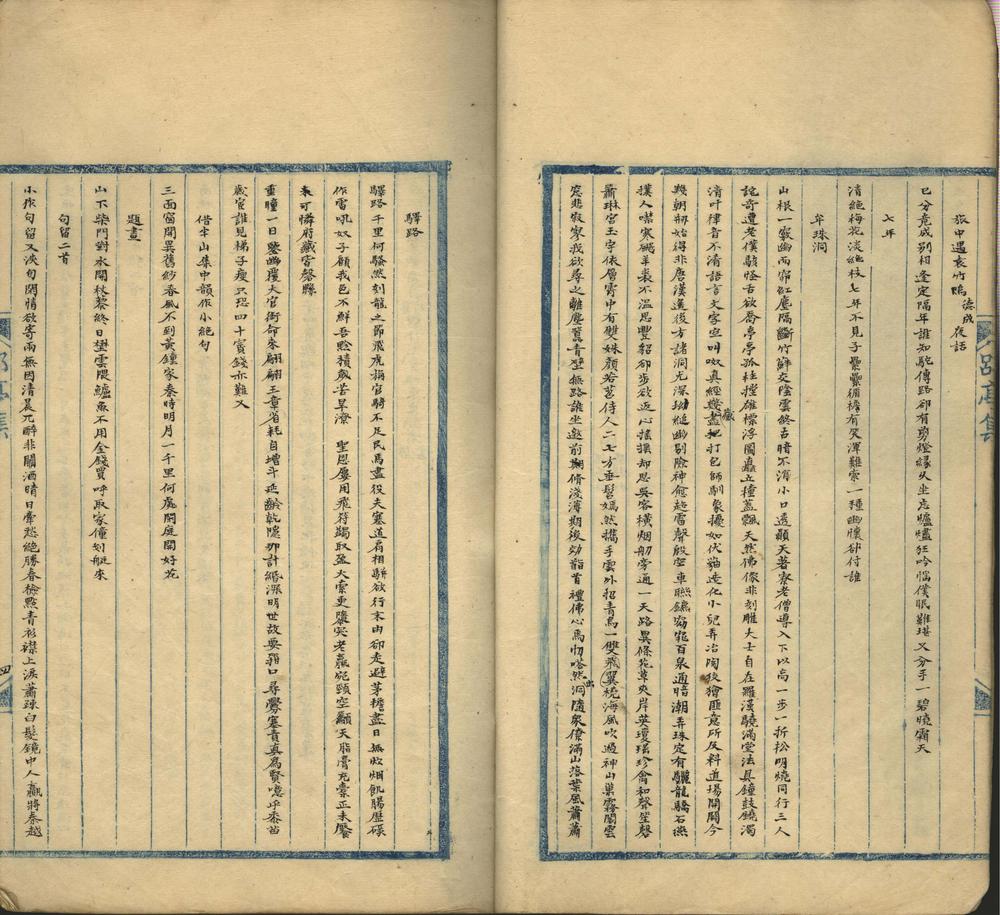 旅中遇袁竹塢德成夜話
已分竟成別相逢定隔年誰知駝傳路卻有剪燈緣久坐忘爐燼狂吟惱僕眠難堪又分手一碧曉霜天
七年
清絕梅花淡絕枝七年不見子纍纍循檐有笑渾難索一種幽懷卻付誰
牟珠洞
山根一竅幽而窈紅塵隔斷竹蘚交陰雲終古暗不消小口透顛天著寮老僧導入下以高一步一折松明燒同行三人
詫奇遭老僕駭怪舌欲喬亭亭孤柱撐雄標浮圖矗立幢蓋飄天然佛像非刻雕大士自在羅漢驍滿堂法具鐘鼓鐃濁
清叶律音不淆語言文字空叫呶真經藏盡把打包師馴象擾如伏貓造化小兒弄冶陶狡獪匪意所反料道場開闢今
幾朝刱始得非唐漢遙後方諸洞尤深坳縋幽剔險神愈超雷聲殷空車聯鑣窈窕百泉通暗潮弄珠定有驪龍驕石燕
撲人噤寒颷羊裘不溫思豐貂卻步欲返心搖搖却思吳客橫烟舠旁通一天路異條花草夾岸英瓊瑤珍禽和聲笙磬
簫琳宮玉宇依層霄中有雙姝顏若苕侍人二七方垂髫嫣然攜手雲外招青鳥一雙飛翼翹海風吹過神山巢霧閣雲
窓悲寂寥我欲尋之離塵囂青壁無路誰坐邀前期脩淺薄期後効䭫首禮佛心爲忉嗒然出洞隨衆僚滿山落葉風蕭蕭
驛路
驛路千里何騷然刻龍之節飛虎旃官騎不足民馬盡役夫塞道肩相駢欲行末由卻走避茅檐盡日無炊烟飢腸歷碌
作雷吼奴子顧我色不鮮吾黔積歲苦旱潦聖恩屢用飛符蠲取盈大索更隳突老羸宛頸空籲天脂膏充橐正未饜
來可憐府藏官磬縣
重瞳一日鑒幽覆天官銜命來翩翩三章省耗自增斗延齡乾隱那計緡深明世故要箝口尋釁塞責真爲賢噫乎黍苗
歲宦誰見梯子瘦只恐四十賣錢亦難又
借半山集中韻作小絕句
三面窗開異舊紗春風不到黃鐘家秦時明月一千里何處閒庭閒好花
題畫
山下柴門對水開杖藜終日望雲隈鱸魚不用金錢買呼取家僮刬艇來
句留二首
小作句留又浹旬閒情欲寄兩無因清晨兀醉非關酒晴日牽愁絕勝春檢點青衫襟上淚蕭疎白髮鏡中人贏將秦越
邵亭集
四